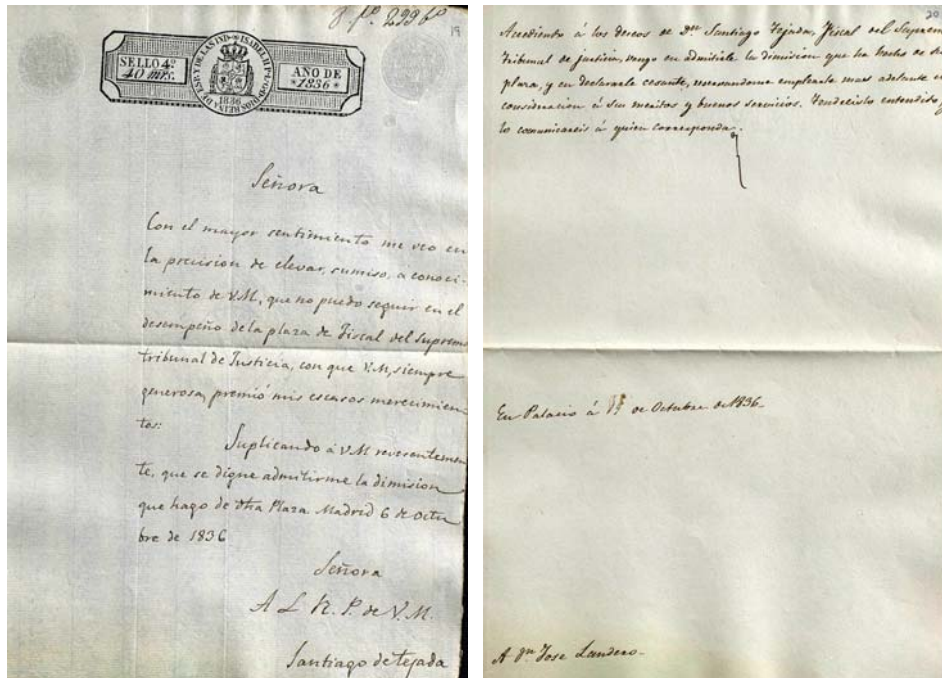 8. fº. 299 bº
19
SELLO 4º
40 mrs.
ISABEL II P. L. G. DE DIOS REINA DE ESP. Y DE LAS IND.
1836
AÑO DE
*1836*
Señora
Con el mayor sentimiento me veo en
la precision de elevar, sumiso, á conoci-
miento de V.M, que no puedo seguir en el
desempeño de la plaza de Fiscal del Supremo
tribunal de Justicia, con que V.M, siempre
generosa, premió mis escasos merecimien
tos:
Suplicando á V.M reverentemen
te, que se digne admitirme la dimision
que hago de dha Plaza. Madrid 6 de octu
bre de 1836
Señora
A L R. P. de V. M.
Santiago de tejada
20
Accediendo á los deseos de Dn. Santiago Tejada, Fiscal del Suprem
tribunal de justicia, vengo en admitirle la dimision que ha hecho de di
plaza, y en declararle cesante, reservandome emplearle mas adelante en
consideracion á sus meritos y buenos servicios. Tendreislo entendido, y
lo comunicareis á quien corresponda.
En Palacio á de Octubre de 1836.
A Dn Jose Landero.